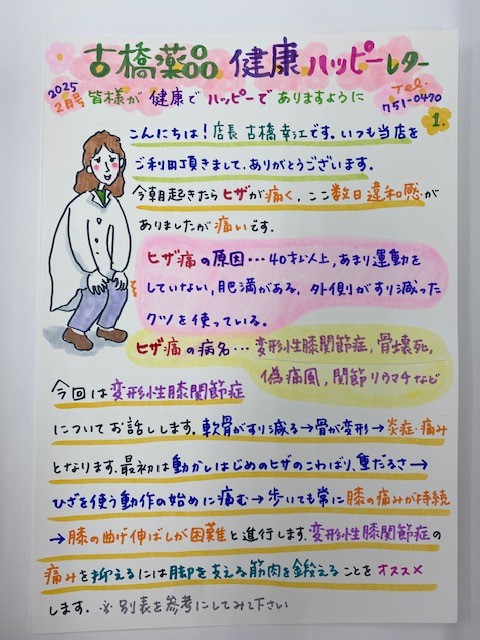 古橋薬品 健康ハッピーレター
2025
2月号 皆様が健康でハッピーでありますように
Tel.
751-0470
1.
こんにちは!店長 古橋幸江です。いつも当店を
ご利用頂きまして、ありがとうございます。
今朝起きたらヒザが痛く、ここ数日違和感が
ありましたが痛いです。
ヒザ痛の原因…40才以上、あまり運動を
していない、肥満がある、外側がすり減った
クツを使っている。
ヒザ痛の病名…変形性膝関節症、骨壊死、
偽痛風、関節リウマチなど
今回は変形性膝関節症
についてお話しします。軟骨がすり減る→骨が変形→炎症・痛み
となります。最初は動かしはじめのヒザのこわばり、重だるさ→
ひざを使う動作の始めに痛む→歩いても常に膝の痛みが持続
→膝の曲げ伸ばしが困難と進行します。変形性膝関節症の
痛みを抑えるには脚を支える筋肉を鍛えることをオススメ
します。※別表を参考にしてみて下さい